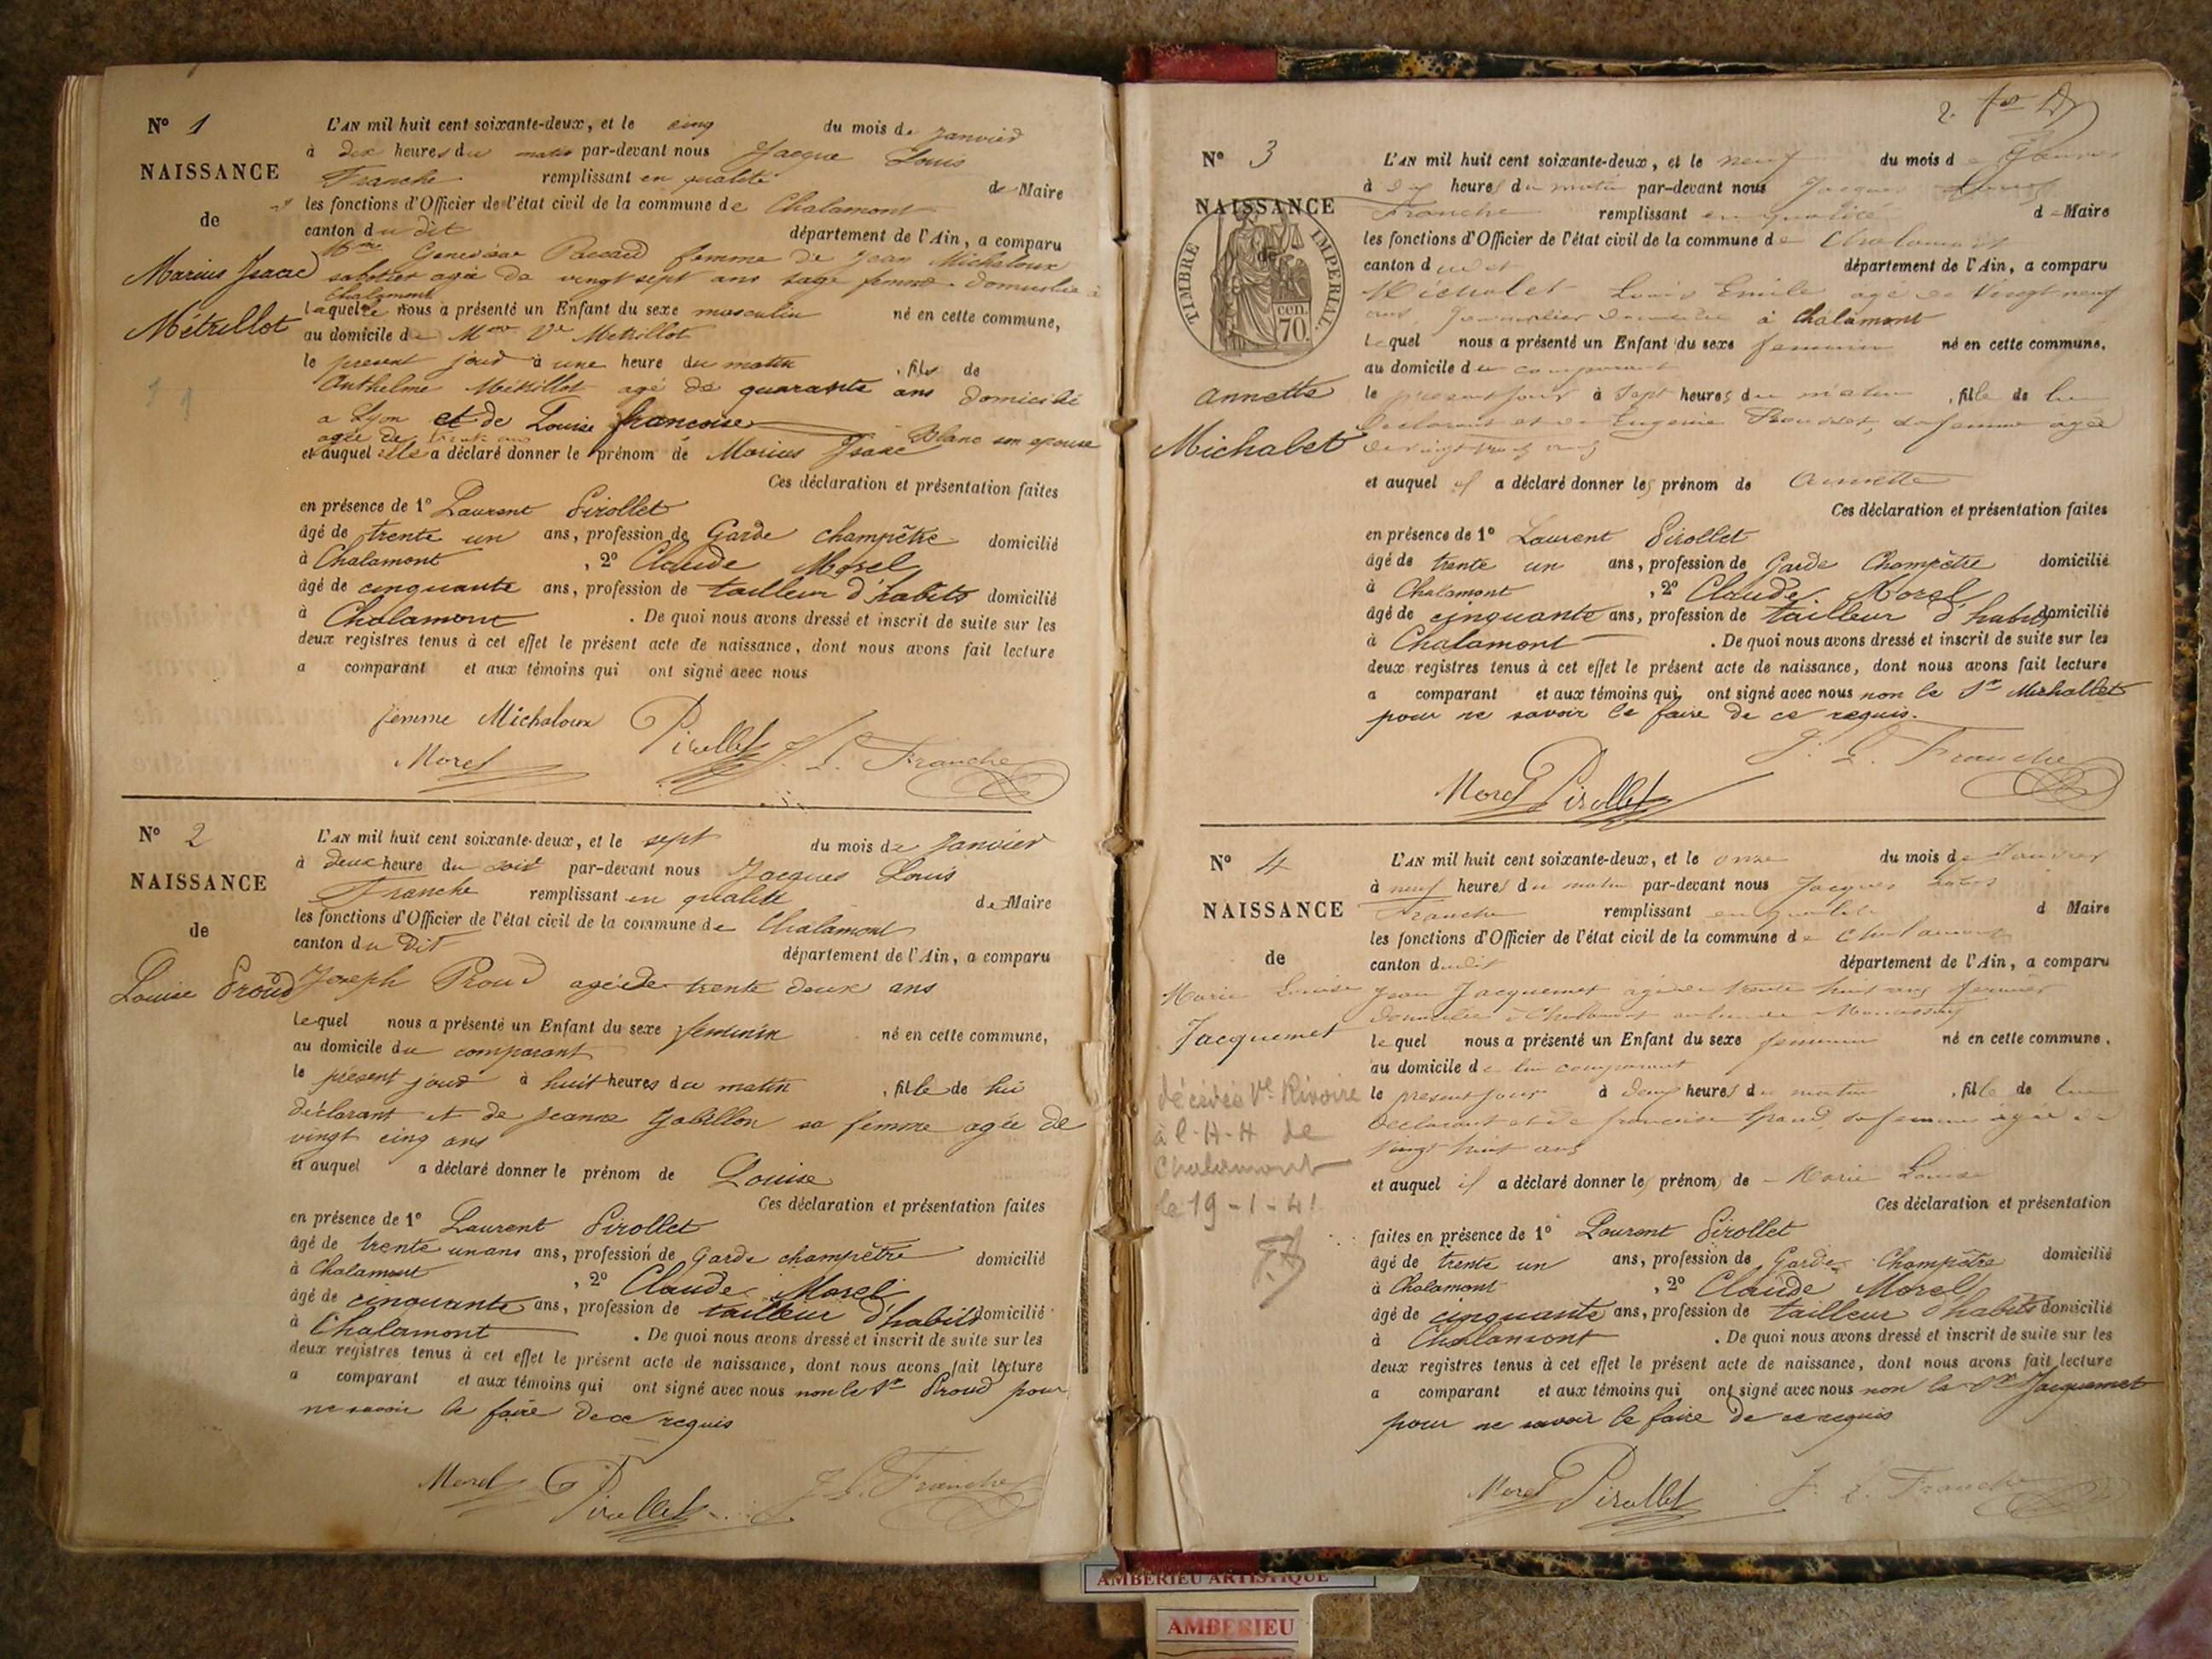 N° 1
NAISSANCE
de
Marius Isaac
Métrillot
L'AN mil huit cent soixante-deux, et le cinq du mois de janvier
à dix heures du matin par-devant nous Jacque Louis
Franche remplissant en qualité de Maire
les fonctions d'Officier de l'état civil de la commune de Chalamont
canton du dit département de l'Ain, a comparu
Mme Genevieve Paccard femme de Jean Micholoux
sabotier agée de vingt sept ans sage femme domiciliée à
Chalamont
Laquelle nous a présenté un Enfant du sexe masculin né en cette commune,
au domicile de Mme Ve Metrillot
le present jour à une heure du matin , fils de
Anthelme Metrillot agé de quarante ans domicilié
a Lyon et de Louise francoise Blanc son epouse
agée de trente ans
et auquel elle a déclaré donner le prénom de Marius Isaac
Ces déclaration et présentation faites
en présence de 1° Laurent Pirollet
âgé de trente un ans, profession de Garde champêtre domicilié
à Chalamont , 2° Claude Morel
âgé de cinquante ans, profession de tailleur d'habits domicilié
à Chalamont . De quoi nous avons dressé et inscrit de suite sur les
deux registres tenus à cet effet le présent acte de naissance, dont nous avons fait lecture
a comparant et aux témoins qui ont signé avec nous
femme Micholoux Pirollet J. L. Franche
Morel
N° 2
NAISSANCE
de
Louise Proud
L'AN mil huit cent soixante-deux, et le sept du mois de janvier
à deux heure du soir par-devant nous Jacques Louis
Franche remplissant en qualité de Maire
les fonctions d'Officier de l'état civil de la commune de Chalamont
canton du dit département de l'Ain, a comparu
Joseph Proud agé de trente deux ans
Lequel nous a présenté un Enfant du sexe feminin né en cette commune,
au domicile du comparant
le présent jour à huit heures du matin , fille de lui
déclarant et de Jeanne Gobillon sa femme agée de
vingt cinq ans
et auquel a déclaré donner le prénom de Louise
Ces déclaration et présentation faites
en présence de 1° Laurent Pirollet
âgé de trente un ans ans, profession de Garde champêtre domicilié
à Chalamont , 2° Claude Morel
âgé de cinquante ans, profession de tailleur d'habits domicilié
à Chalamont . De quoi nous avons dressé et inscrit de suite sur les
deux registres tenus à cet effet le présent acte de naissance, dont nous avons fait lecture
a comparant et aux témoins qui ont signé avec nous non le Sr Proud pour
ne savoir le faire de ce requis
Morel Pirollet J. L. Franche
2.
N° 3
NAISSANCE
de
TIMBRE IMPERIAL
70 cen.
Annette
Michalet
L'AN mil huit cent soixante-deux, et le neuf du mois de Janvier
à dix heures du matin par-devant nous Jacques Louis
Franche remplissant en qualité de Maire
les fonctions d'Officier de l'état civil de la commune de Chalamont
canton dudit département de l'Ain, a comparu
Michalet Louis Emile agé de Vingt neuf
ans domicilié à Chalamont
Lequel nous a présenté un Enfant du sexe feminin né en cette commune,
au domicile du comparant
le present jour à Sept heures du matin , fille de lui
Declarant et de Eugenie sa femme agée
de vingt trois ans
et auquel il a déclaré donner les prénom de Annette
Ces déclaration et présentation faites
en présence de 1° Laurent Pirollet
âgé de trente un ans, profession de Garde Champêtre domicilié
à Chalamont , 2° Claude Morel
âgé de cinquante ans, profession de tailleur d'habits domicilié
à Chalamont . De quoi nous avons dressé et inscrit de suite sur les
deux registres tenus à cet effet le présent acte de naissance, dont nous avons fait lecture
a comparant et aux témoins qui ont signé avec nous non le Sr Michallet
pour ne savoir le faire de ce requis.
Morel Pirollet J. L. Franche
N° 4
NAISSANCE
de
Marie Louise
Jacquemet
décédée Ve Rivoire
à l'H-H de
Chalamont
le 19-1-41
L'AN mil huit cent soixante-deux, et le onze du mois de Janvier
à neuf heures du matin par-devant nous Jacques Louis
Franche remplissant en qualité d Maire
les fonctions d'Officier de l'état civil de la commune de Chalamont
canton dudit département de l'Ain, a comparu
Jean Jacquemet agé de trente huit ans fermier
domicilié à Chalamont au lieu de
Lequel nous a présenté un Enfant du sexe feminin né en cette commune,
au domicile de lui comparant
le present jour à deux heures du matin , fille de lui
Declarant et de francoise sa femme agée de
Vingt huit ans
et auquel il a déclaré donner les prénoms de Marie Louise
Ces déclaration et présentation
faites en présence de 1° Laurent Pirollet
âgé de trente un ans, profession de Garde Champêtre domicilié
à Chalamont , 2° Claude Morel
âgé de cinquante ans, profession de tailleur d'habits domicilié
à Chalamont . De quoi nous avons dressé et inscrit de suite sur les
deux registres tenus à cet effet le présent acte de naissance, dont nous avons fait lecture
a comparant et aux témoins qui ont signé avec nous non le Sr Jacquemet
pour ne savoir le faire de ce requis
Morel Pirollet J. L. Franche
AMBERIEU ARTISTIQUE
AMBERIEU